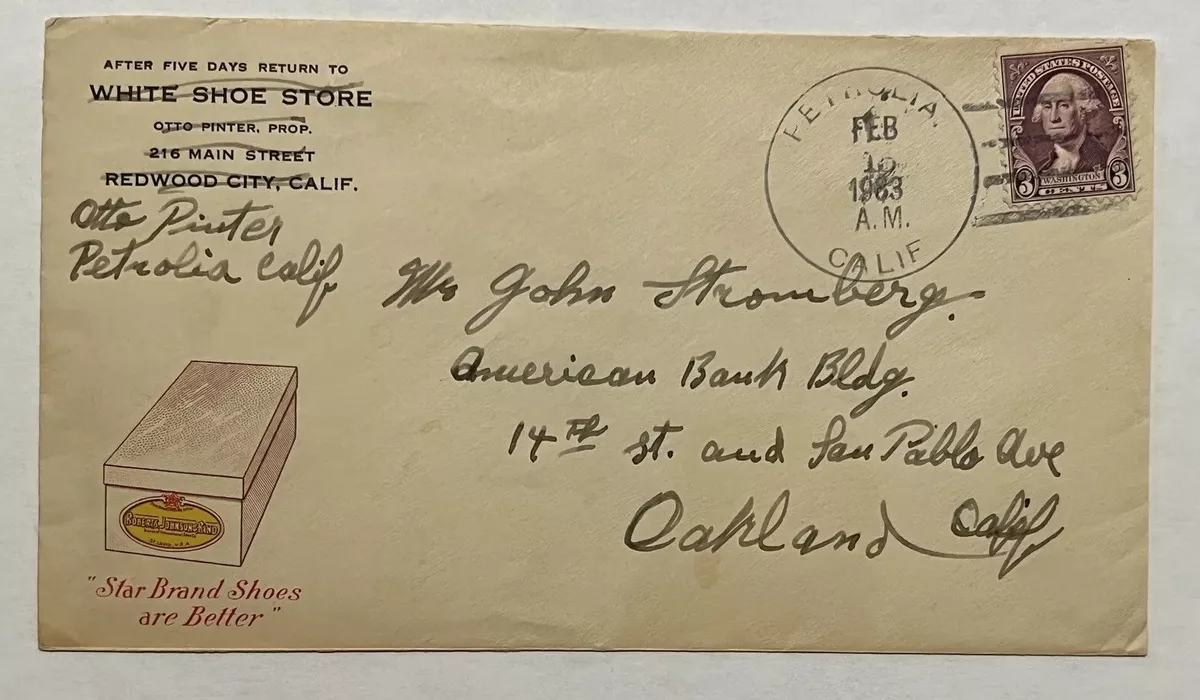 AFTER FIVE DAYS RETURN TO
WHITE SHOE STORE
OTTO PINTER, PROP.
216 MAIN STREET
REDWOOD CITY, CALIF.
Otto Pinter
Petrolia Calif
PETROLIA.
FEB
1963
A.M.
CALIF
UNITED STATES POSTAGE
3 WASHINGTON 3
CENTS
Mr John Stromberg.
American Bank Bldg.
14th st. and San Pablo Ave
Oakland Calif.
ROBERTS, JOHNSON & RAND
ST. LOUIS, U.S.A.
"Star Brand Shoes
are Better"